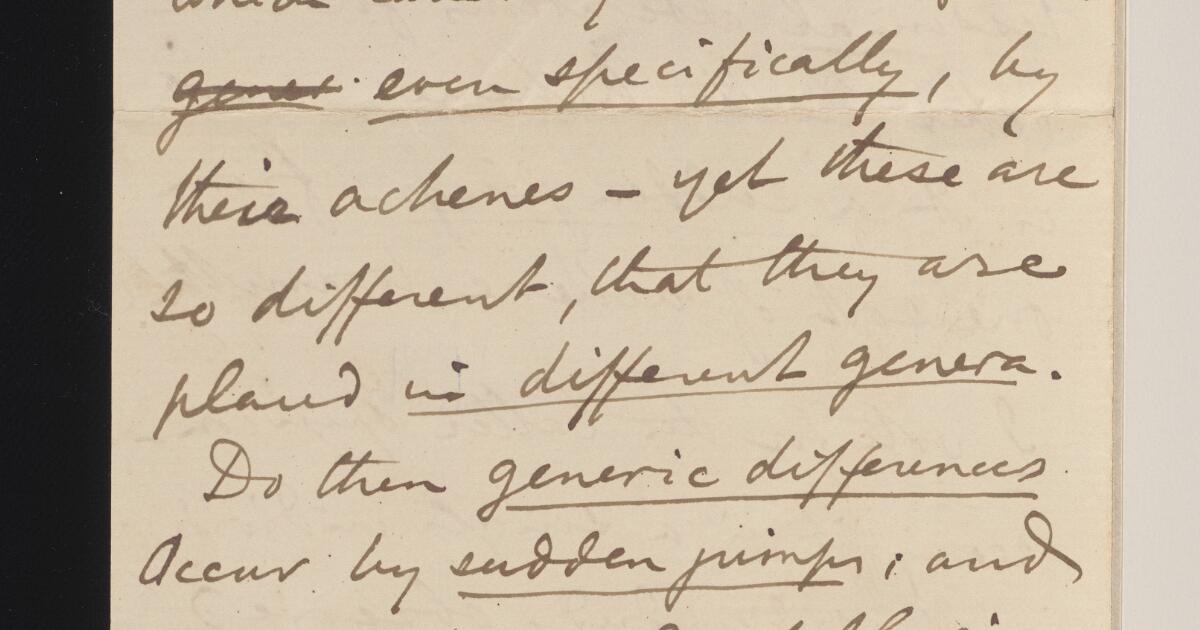 gener. even specifically, by
their achenes - yet these are
so different, that they are
placed in different genera.
Do then generic differences
occur by sudden jumps; and